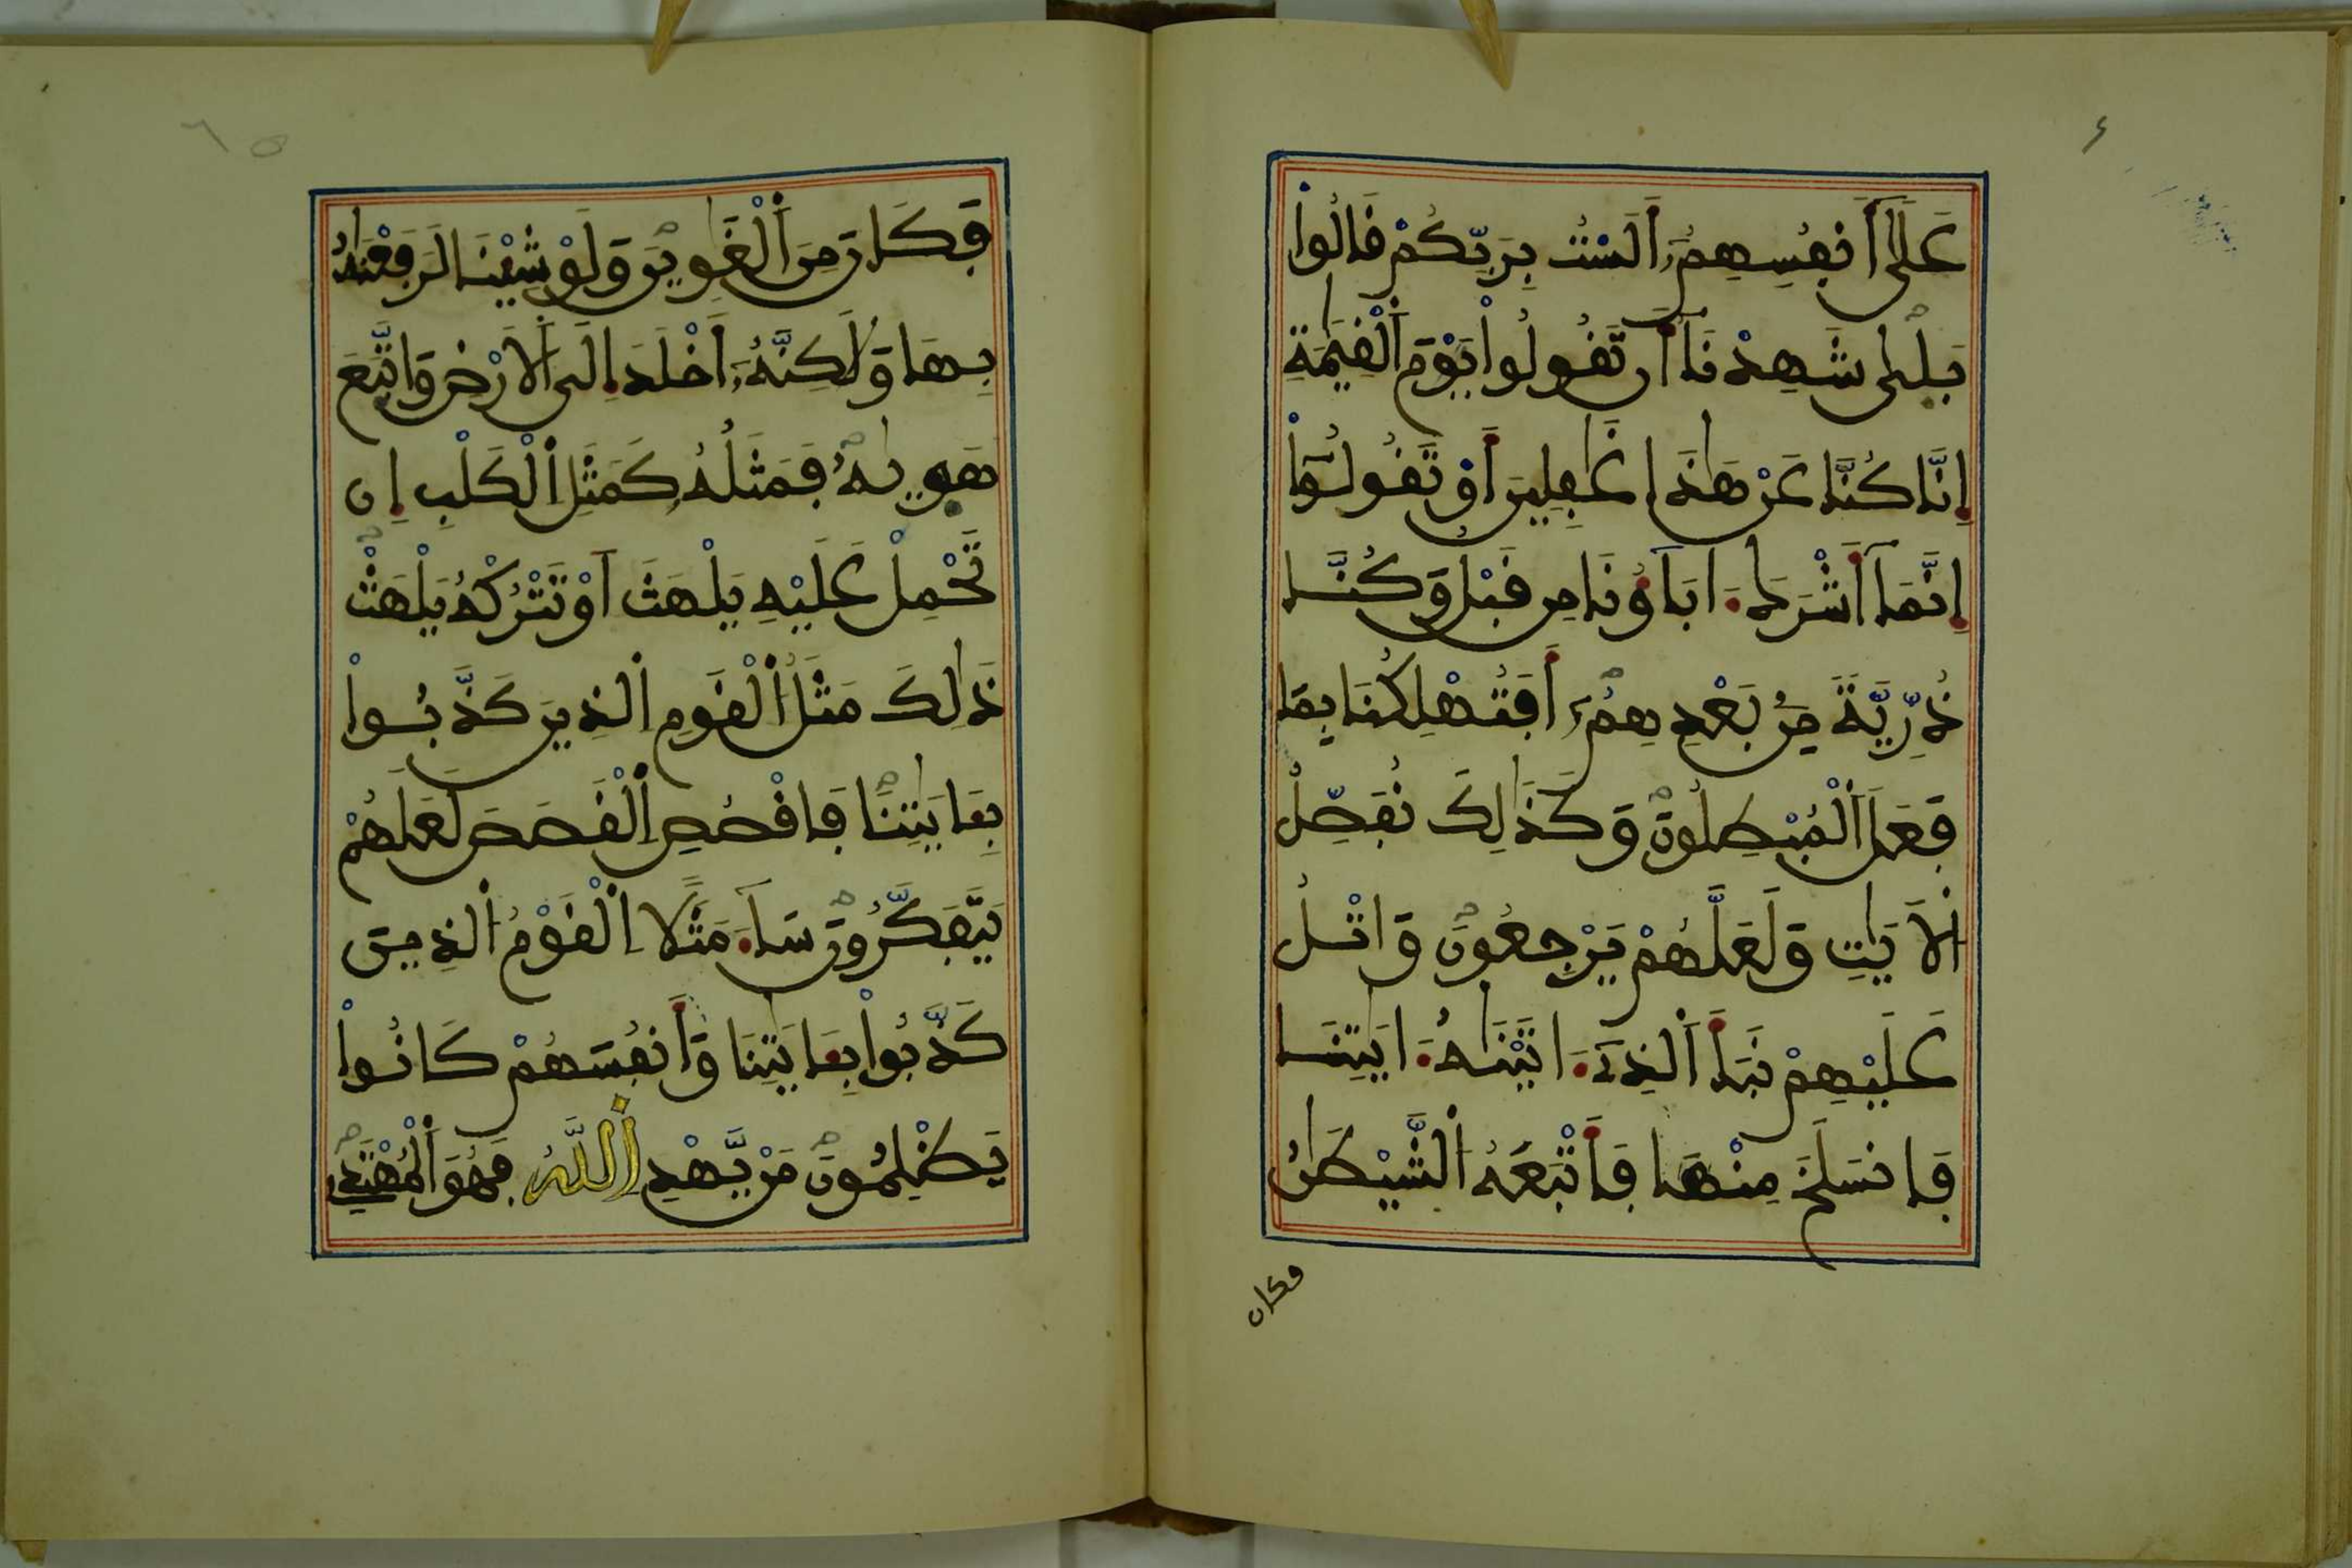 عَلَىٰٓ أَنفُسِهِمُۥٓ أَلَسْتُ بِرَبِّكُمْ قَالُواْ
بَلَىٰ شَهِدْنَآ أَن تَقُولُواْ يَوْمَ ٱلْقِيَٰمَةِ
إِنَّا كُنَّا عَنْ هَٰذَا غَٰفِلِينَ أَوْ تَقُولُوٓاْ
إِنَّمَآ أَشْرَكَ ءَابَآؤُنَا مِن قَبْلُ وَكُنَّا
ذُرِّيَّةً مِّنۢ بَعْدِهِمُۥٓ أَفَتُهْلِكُنَا بِمَا
فَعَلَ ٱلْمُبْطِلُونَ وَكَذَٰلِكَ نُفَصِّلُ
ٱلْأَيَٰتِ وَلَعَلَّهُمْ يَرْجِعُونَ وَاتْلُ
عَلَيْهِمْ نَبَأَ ٱلَّذِےٓ ءَاتَيْنَٰهُ ءَايَٰتِنَا
فَانسَلَخَ مِنْهَا فَأَتْبَعَهُ ٱلشَّيْطَٰنُ
فكان
فَكَانَ مِنَ ٱلْغَاوِينَ وَلَوْ شِيْنَا لَرَفَعْنَٰهُ
بِهَا وَلَٰكِنَّهُۥٓ أَخْلَدَ إِلَى ٱلْأَرْضِ وَاتَّبَعَ
هَوَيٰهُ فَمَثَلُهُۥ كَمَثَلِ ٱلْكَلْبِ إِن
تَحْمِلْ عَلَيْهِ يَلْهَثَ اَوْ تَتْرُكْهُ يَلْهَثْ
ذَٰلِكَ مَثَلُ ٱلْقَوْمِ ٱلَّذِينَ كَذَّبُواْ
بِـَٔايَٰتِنَا فَاقْصُصِ ٱلْقَصَصَ لَعَلَّهُمْ
يَتَفَكَّرُونَ سَآءَ مَثَلًا ٱلْقَوْمُ ٱلَّذِينَ
كَذَّبُواْ بِـَٔايَٰتِنَا وَأَنفُسَهُمْ كَانُواْ
يَظْلِمُونَ مَنْ يَّهْدِ ٱللَّهُ فَهُوَ ٱلْمُهْتَدِے